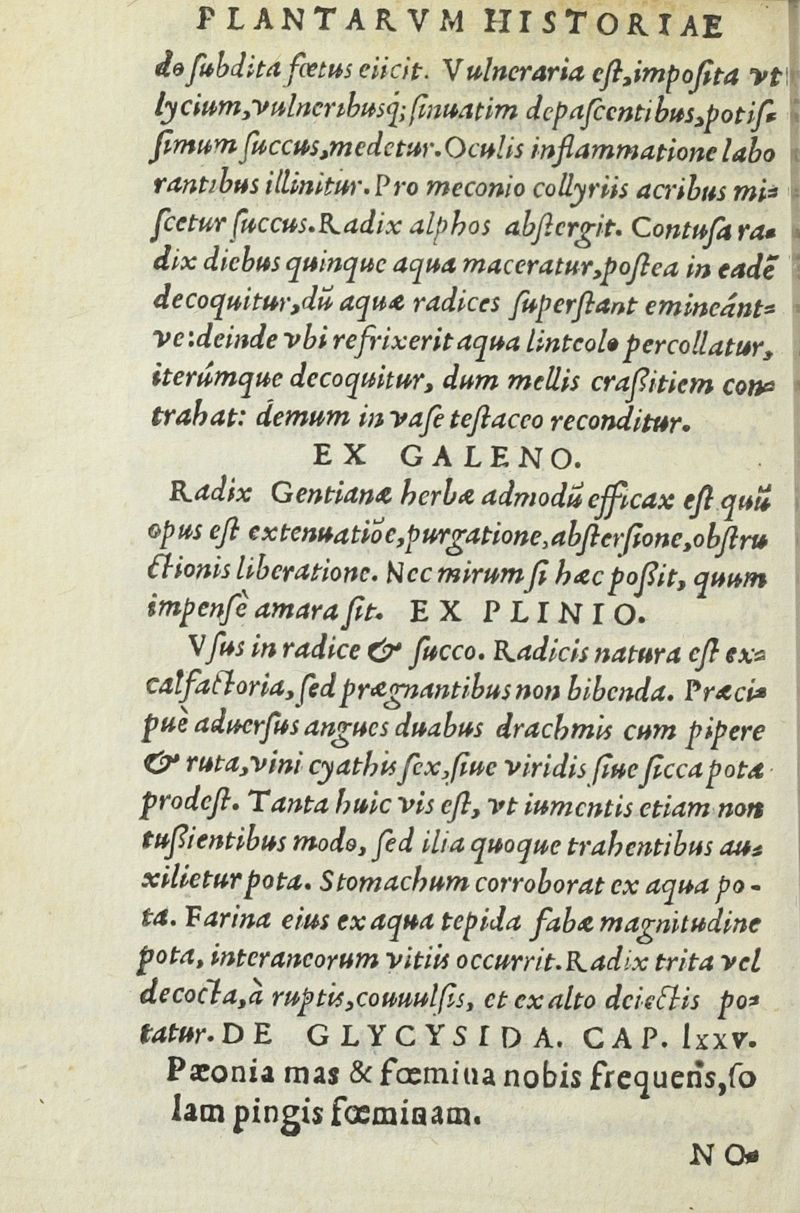 PLANTARVM HISTORIAE
do ſubdita fœtus eiicit. Vulneraria eſt, impoſita vt
lycium, vulneribusq́; ſinuatim depaſcentibus, potiſ-
ſimum ſuccus, medetur. Oculis inflammatione labo
rantibus illinitur. Pro meconio collyriis acribus mi-
ſcetur ſuccus. Radix alphos abſtergit. Contuſa ra-
dix diebus quinque aqua maceratur, poſtea in eadē
decoquitur, dū aquæ radices ſuperſtant emineánt-
ve: deinde vbi refrixerit aqua linteolo percollatur,
iterúmque decoquitur, dum mellis craßitiem con-
trahat: demum in vaſe teſtaceo reconditur.
EX GALENO.
Radix Gentianæ herbæ admodū efficax eſt quū
opus eſt extenuatiōe, purgatione, abſterſione, obſtru
ctionis liberatione. Nec mirum ſi hæc poßit, quum
impenſè amara ſit. EX PLINIO.
Vſus in radice & ſucco. Radicis natura eſt ex-
calfactoria, ſed prægnantibus non bibenda. Præci-
puè aduerſus angues duabus drachmis cum pipere
& ruta, vini cyathis ſex, ſiue viridis ſiue ſicca pota
prodeſt. Tanta huic vis eſt, vt iumentis etiam non
tußientibus modo, ſed ilia quoque trahentibus au-
xilietur pota. Stomachum corroborat ex aqua po-
ta. Farina eius ex aqua tepida fabæ magnitudine
pota, interaneorum vitiis occurrit. Radix trita vel
decocta, à ruptis, couuulſis, et ex alto deiectis po-
tatur. DE GLYCYSIDA. CAP. lxxv.
Pæonia mas & fœmina nobis frequens, ſo
lam pingis fœminam.
NO-